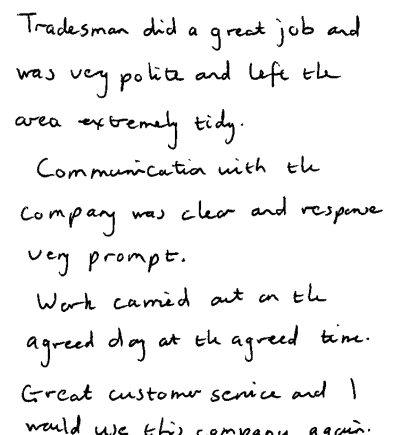 Tradesman did a great job and
was very polite and left the
area extremely tidy.
Communication with the
company was clear and response
very prompt.
Work carried out on the
agreed day at the agreed time.
Great customer service and I
would use this company again.